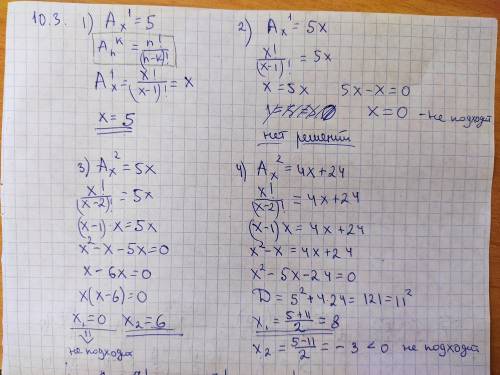 10.3. 1) Aₓ¹ = 5
Aₙᵏ = n!/(n-k)!
Aₓ¹ = x!/(x-1)! = x
x = 5
2) Aₓ¹ = 5x
x!/(x-1)! = 5x
x = 5x 5x-x=0
x=0 - не подходит
нет решений
3) Aₓ² = 5x
x!/(x-2)! = 5x
(x-1) x = 5x
x²-x-5x=0
x-6x=0
x(x-6)=0
x₁=0 x₂=6
не подходит
4) Aₓ² = 4x+24
x!/(x-2)! = 4x+24
(x-1)x = 4x+24
x²-x = 4x+24
x²-5x-24=0
D = 5²+4·24 = 121 = 11²
x₁ = (5+11)/2 = 8
x₂ = (5-11)/2 = -3 < 0 не подходит